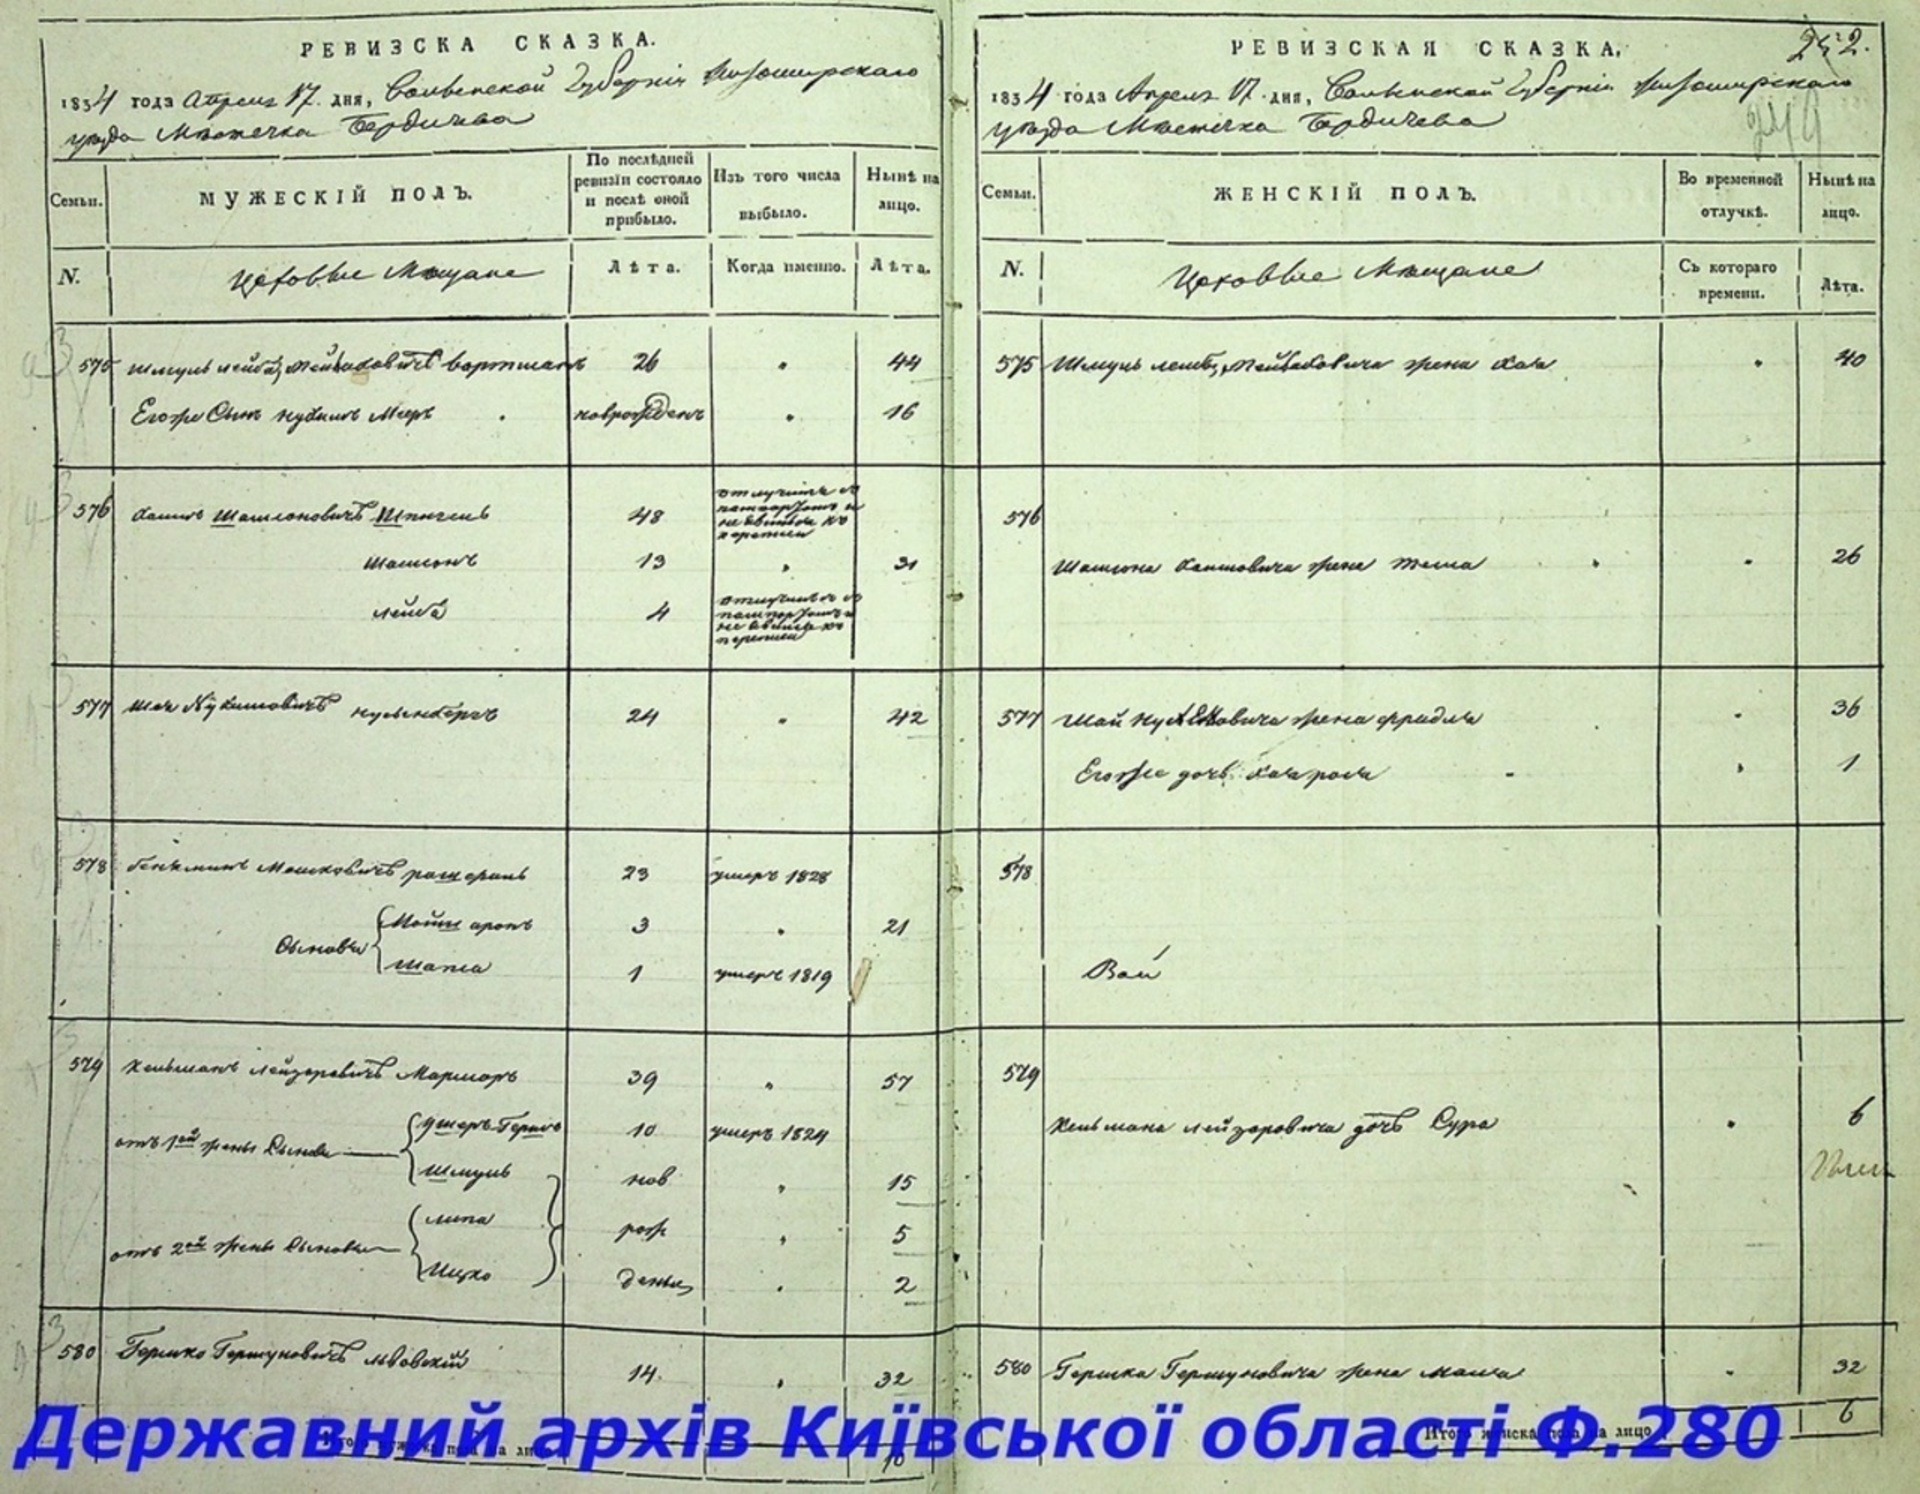 РЕВИЗСКА СКАЗКА.
1834 года Апреля 17 дня, Волынской Губерніи Житомирскаго
уезда Местечка Бердичева
Семьи.
МУЖЕСКІЙ ПОЛЪ.
По послѣдней ревизіи состояло и послѣ оной прибыло.
Изъ того числа выбыло.
Нынѣ на лицо.
N.
Цеховые Мещане
Лѣта.
Когда именно.
Лѣта.
575 Шмуль Лейба Лейбовичъ 26 „ 44
Егоже Сынъ Нухимъ Меер новрожденъ „ 16
576 Хаимъ Шамсоновичъ 48 отлучился с пашпортомъ и не явился къ переписи
Шамсонъ 13 „ 31
Лейба 4 отлучился с пашпортомъ и не явился къ переписи
577 Шая Нухимовичъ 24 „ 42
578 Бениминъ Мошковичъ 23 умеръ 1828
Сыновья Мойше аронъ 3 „ 21
Шапса 1 умеръ 1819
579 Кельманъ Лейзеровичъ Мармаръ 39 „ 57
отъ 1ой жены Сыновья Ушеръ Гершъ 10 умеръ 1824
Шмуль нов „ 15
отъ 2ой жены Сыновья липа рож „ 5
Ицко дены „ 2
580 Гершко Гершуновичъ Львовскій 14 „ 32
10
РЕВИЗСКАЯ СКАЗКА.
252.
1834 года Апреля 17 дня, Волынской Губерніи Житомирскаго
уезда Местечка Бердичева
Семьи.
ЖЕНСКІЙ ПОЛЪ.
Во временной отлучкѣ.
Нынѣ на лицо.
N.
Цеховые Мещане
Съ котораго времени.
Лѣта.
575 Шмуль Лейбы Лейбовича жена Хая „ 40
576
Шамсона Хаимовича жена „ 26
577 Шаи Нухимовича жена фридля „ 36
Егоже дочь Хая рося „ 1
578
579
Кельмана Лейзеровича дочь Сура „ 6
580 Гершка Гершуновича жена маша „ 32
Итого женска пола на лицо 6
Державний архів Київської області Ф.280